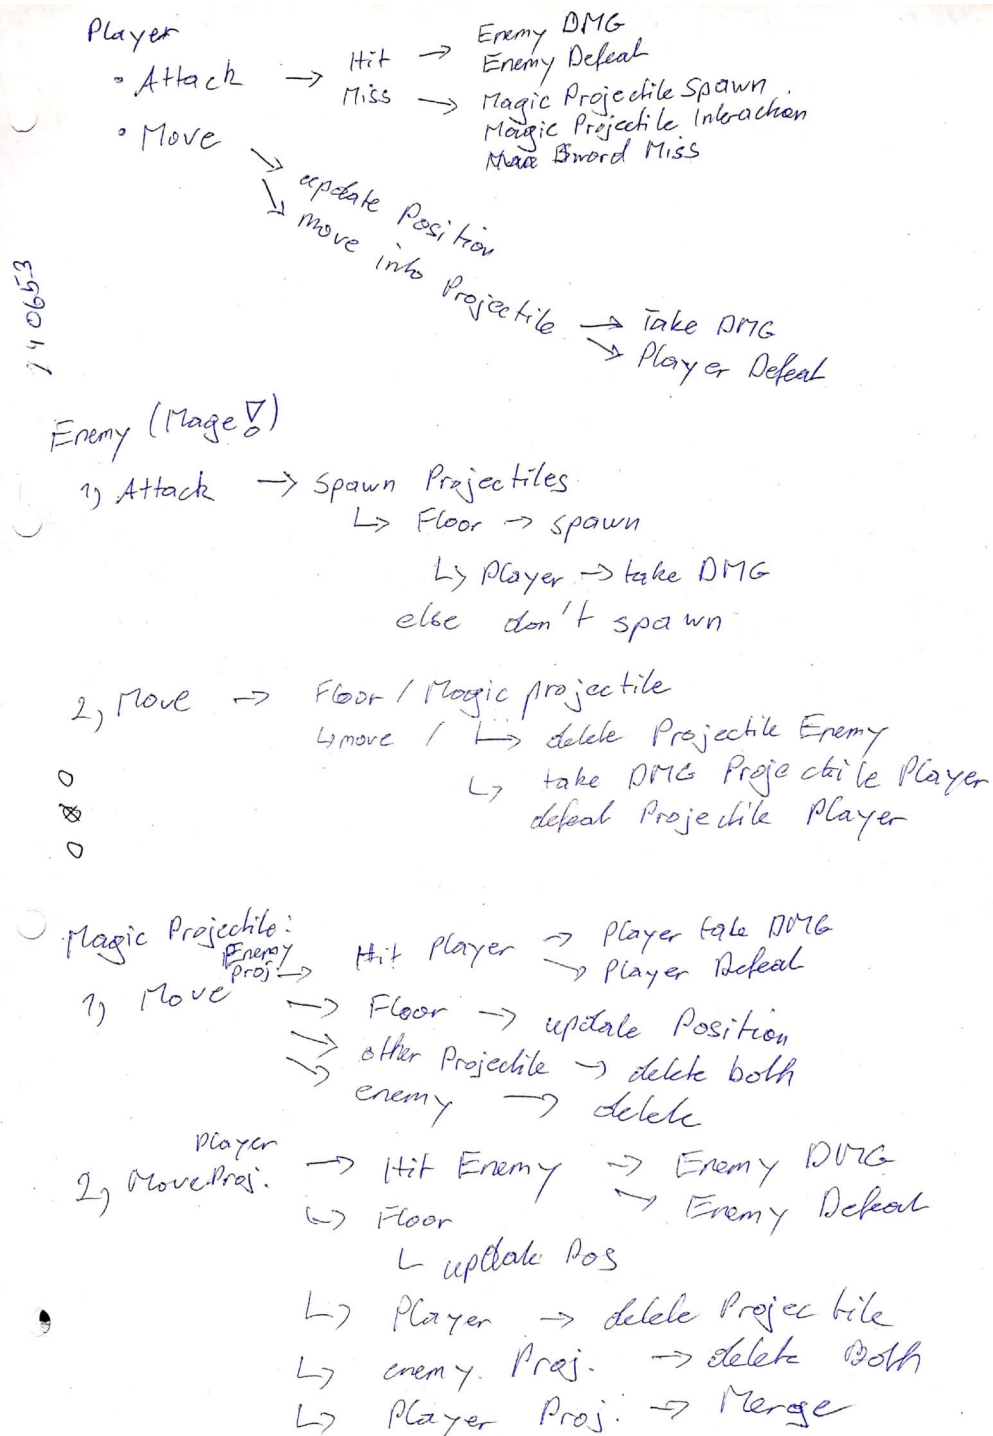 Player
• Attack → Hit → Enemy DMG
Enemy Defeat
Miss → Magic Projectile Spawn
Magic Projectile Interaction
Sword Miss
• Move
↘ update Position
↘ move into Projectile → Take DMG
↘ Player Defeat
140653
Enemy (Mage!)
1) Attack → Spawn Projectiles
↳ Floor → spawn
↳ Player → take DMG
else don't spawn
2) Move → Floor / Magic projectile
↳ move / ↳ delete Projectile Enemy
↳ take DMG Projectile Player
defeat Projectile Player
Magic Projectile:
1) Move Enemy Proj. → Hit Player → Player take DMG
↘ Player Defeat
→ Floor → update Position
↘ other Projectile → delete both
↘ enemy → delete
2) Move Player Proj. → Hit Enemy → Enemy DMG
↘ Enemy Defeat
↳ Floor
↳ update Pos
↳ Player → delete Projectile
↳ enemy. Proj. → delete Both
↳ Player Proj. → Merge